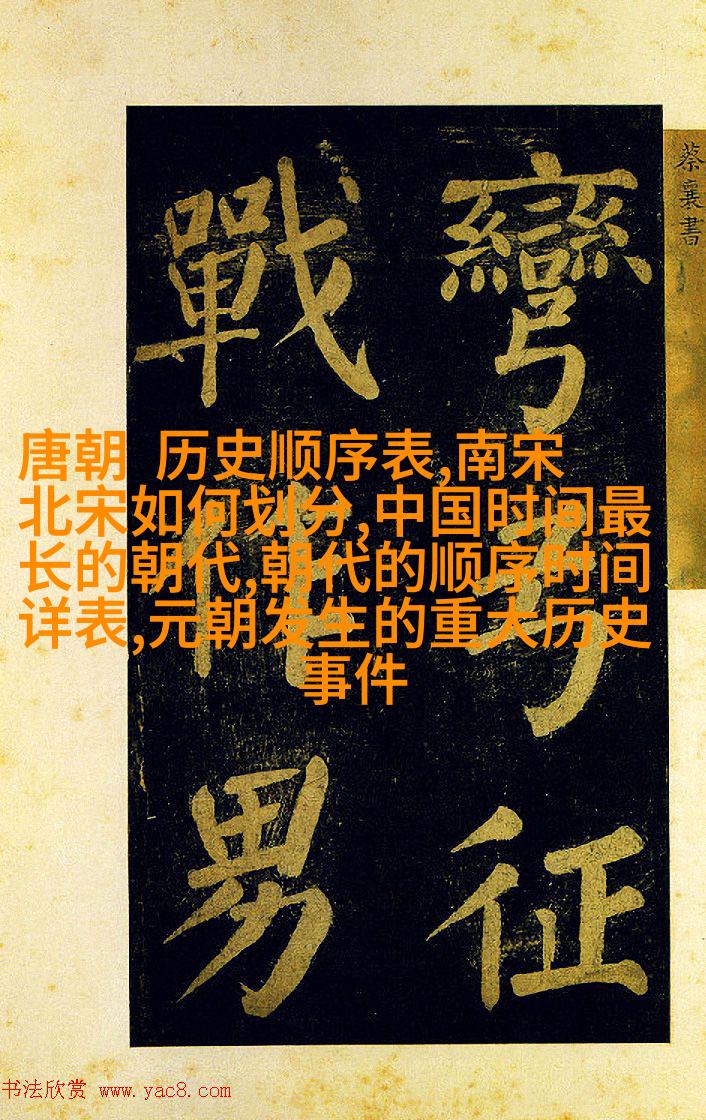 蔡襄書
彎弓征
戰作男
唐朝 历史顺序表,南宋
北宋如何划分,中国时间最
长的朝代,朝代的顺序时间
详表,元朝发生的重大历史
事件
书法欣赏 www.yac8.com